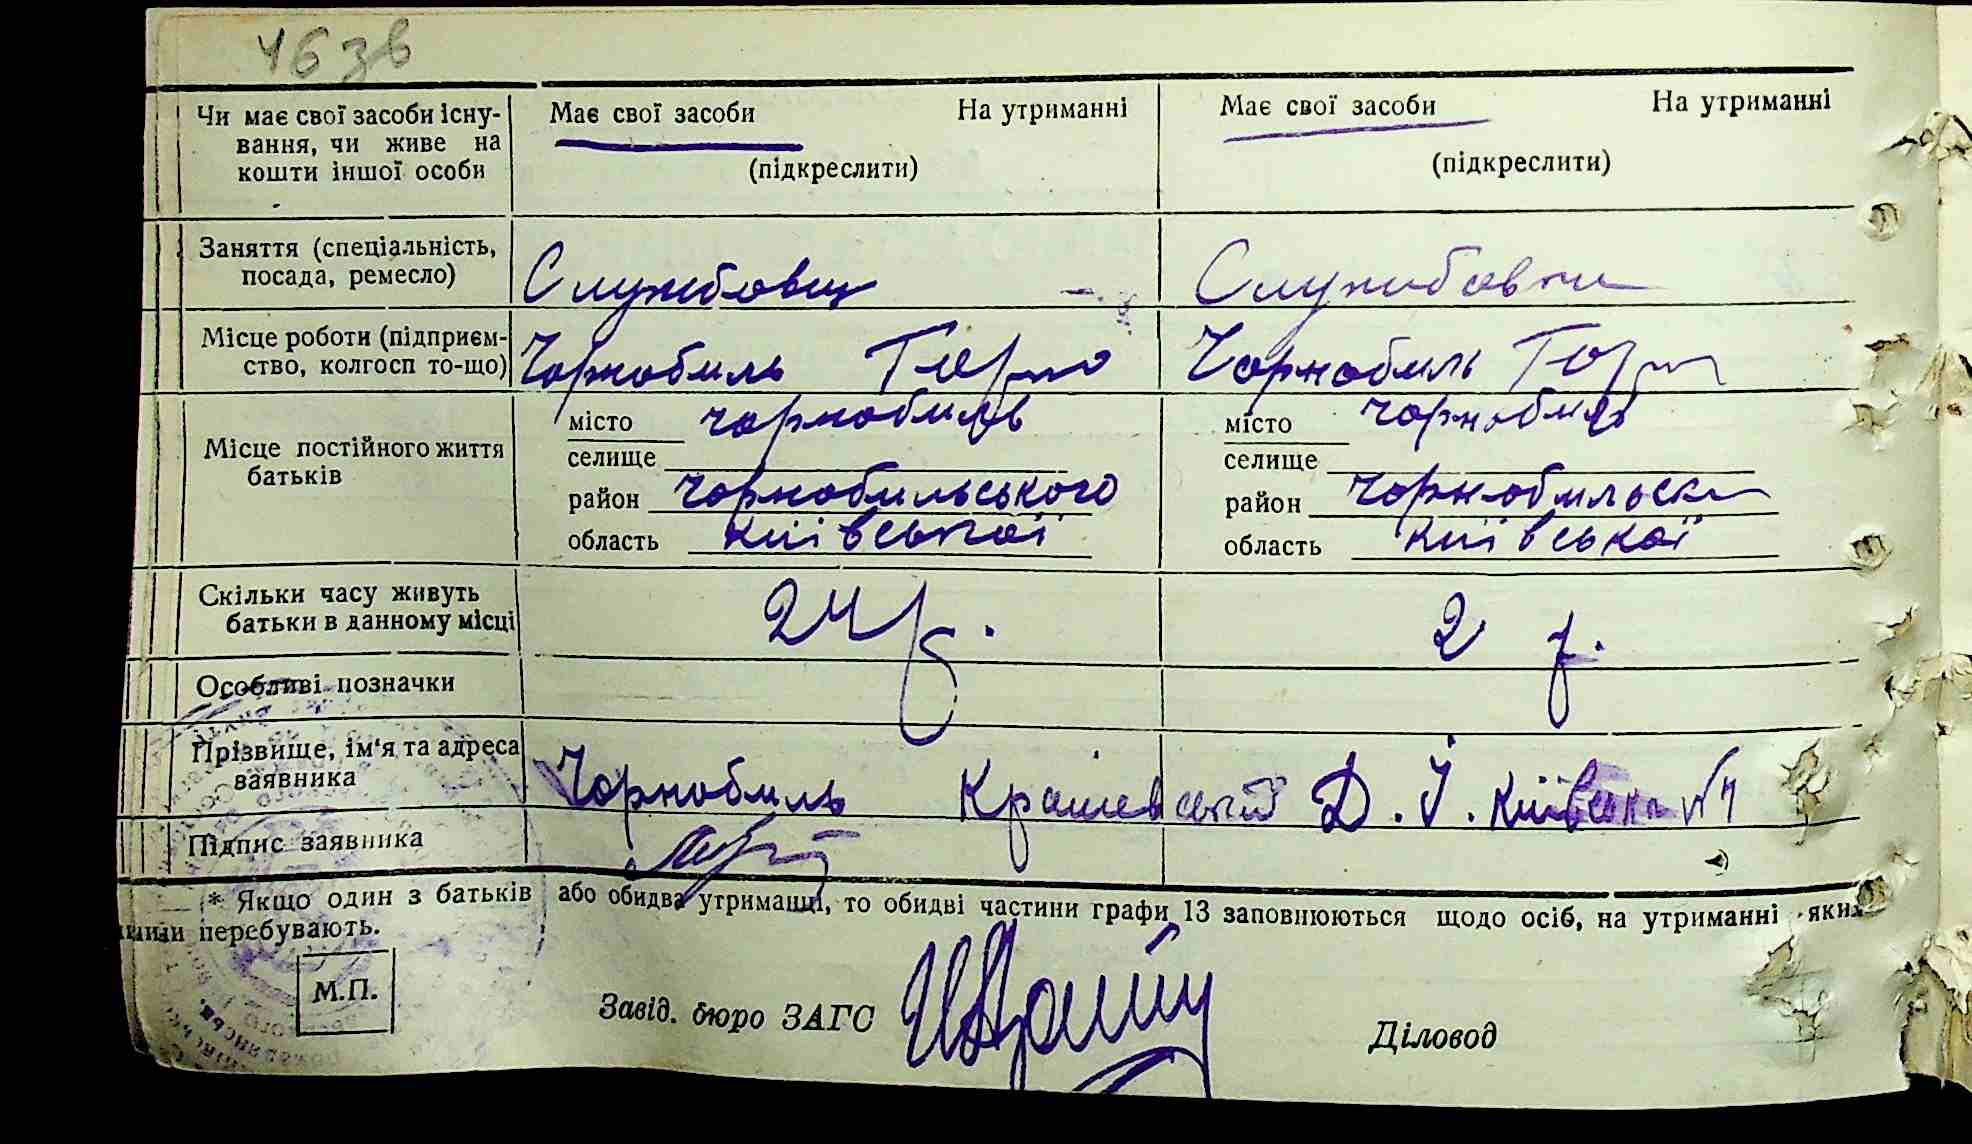 46 зв
Чи має свої засоби існу- Має свої засоби На утриманні Має свої засоби На утриманні
вання, чи живе на
кошти іншої особи (підкреслити) (підкреслити)
Заняття (спеціальність,
посада, ремесло) Службовец Службовка
Місце роботи (підприєм-
ство, колгосп то-що) Чорнобиль Чорнобиль
місто чорнобиль місто чорнобиль
Місце постійного життя селище селище
батьків район чорнобильського район чорнобильск
область київської область київської
Скільки часу живуть
батьки в данному місці 24 р. 2 р.
Особливі позначки
Прізвище, ім'я та адреса
заявника Чорнобиль Крашевський Д. І. Київська №4
Підпис заявника
* Якщо один з батьків або обидва утриманці, то обидві частини графи 13 заповнюються щодо осіб, на утриманні яких
перебувають.
М.П.
Завід. бюро ЗАГС Діловод